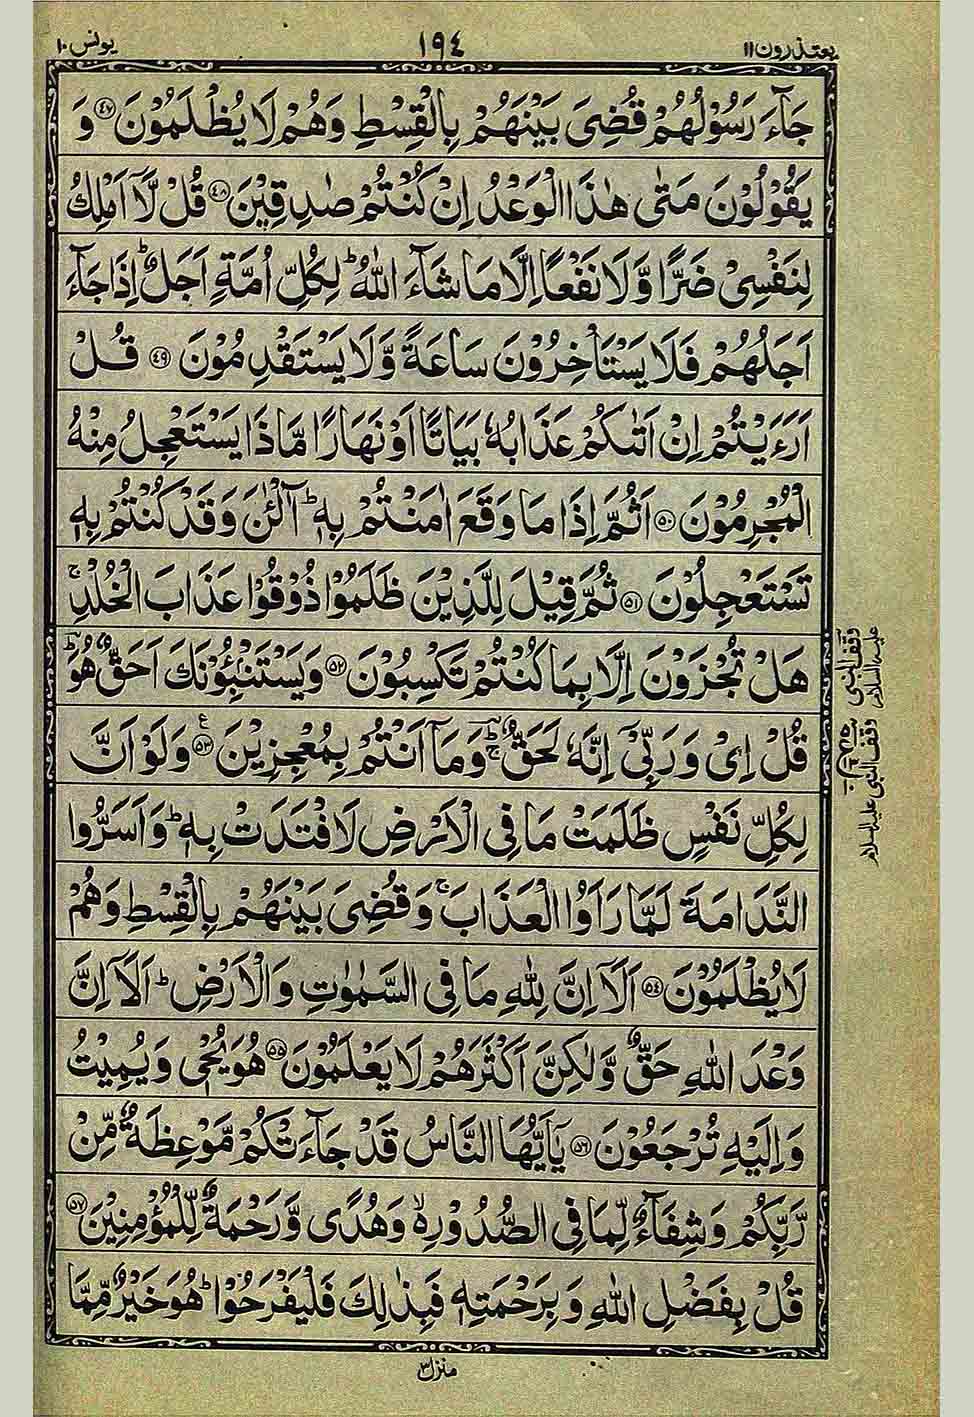 يعتذرون ۱۱ ۱۹٤ يونس ۱۰
جَآءَ رَسُوْلُهُمْ قُضِىَ بَيْنَهُمْ بِالْقِسْطِ وَهُمْ لَا يُظْلَمُوْنَ ۝٤٧ وَ
يَقُوْلُوْنَ مَتٰى هٰذَا الْوَعْدُ اِنْ كُنْتُمْ صٰدِقِيْنَ ۝٤٨ قُلْ لَّاۤ اَمْلِكُ
لِنَفْسِىْ ضَرًّا وَّلَا نَفْعًا اِلَّا مَا شَآءَ اللّٰهُ ؕ لِكُلِّ اُمَّةٍ اَجَلٌ ؕ اِذَا جَآءَ
اَجَلُهُمْ فَلَا يَسْتَاْخِرُوْنَ سَاعَةً وَّلَا يَسْتَقْدِمُوْنَ ۝٤٩ قُلْ
اَرَءَيْتُمْ اِنْ اَتٰىكُمْ عَذَابُهٗ بَيَاتًا اَوْ نَهَارًا مَّاذَا يَسْتَعْجِلُ مِنْهُ
الْمُجْرِمُوْنَ ۝٥٠ اَثُمَّ اِذَا مَا وَقَعَ اٰمَنْتُمْ بِهٖ ؕ آٰلْـٰٔنَ وَقَدْ كُنْتُمْ بِهٖ
تَسْتَعْجِلُوْنَ ۝٥١ ثُمَّ قِيْلَ لِلَّذِيْنَ ظَلَمُوْا ذُوْقُوْا عَذَابَ الْخُلْدِ ۚ
هَلْ تُجْزَوْنَ اِلَّا بِمَا كُنْتُمْ تَكْسِبُوْنَ ۝٥٢ وَيَسْتَنْۢبِـُٔوْنَكَ اَحَقٌّ هُوَ ؕ
قُلْ اِىْ وَرَبِّىْۤ اِنَّهٗ لَحَقٌّ ؕۚ وَمَاۤ اَنْتُمْ بِمُعْجِزِيْنَ ۝٥٣ ع وَلَوْ اَنَّ
لِكُلِّ نَفْسٍ ظَلَمَتْ مَا فِى الْاَرْضِ لَافْتَدَتْ بِهٖ ؕ وَاَسَرُّوا
النَّدَامَةَ لَمَّا رَاَوُا الْعَذَابَ ۚ وَقُضِىَ بَيْنَهُمْ بِالْقِسْطِ وَهُمْ
لَا يُظْلَمُوْنَ ۝٥٤ اَلَاۤ اِنَّ لِلّٰهِ مَا فِى السَّمٰوٰتِ وَالْاَرْضِ ؕ اَلَاۤ اِنَّ
وَعْدَ اللّٰهِ حَقٌّ وَّلٰكِنَّ اَكْثَرَهُمْ لَا يَعْلَمُوْنَ ۝٥٥ هُوَ يُحْىٖ وَيُمِيْتُ
وَاِلَيْهِ تُرْجَعُوْنَ ۝٥٦ يٰۤاَيُّهَا النَّاسُ قَدْ جَآءَتْكُمْ مَّوْعِظَةٌ مِّنْ
رَّبِّكُمْ وَشِفَآءٌ لِّمَا فِى الصُّدُوْرِ ۙ۬ وَهُدًى وَّرَحْمَةٌ لِّلْمُؤْمِنِيْنَ ۝٥٧
قُلْ بِفَضْلِ اللّٰهِ وَبِرَحْمَتِهٖ فَبِذٰلِكَ فَلْيَفْرَحُوْا ؕ هُوَ خَيْرٌ مِّمَّا
وقف النبى
عليه السلام
وقف النبى عليه السلام
منزل ۳